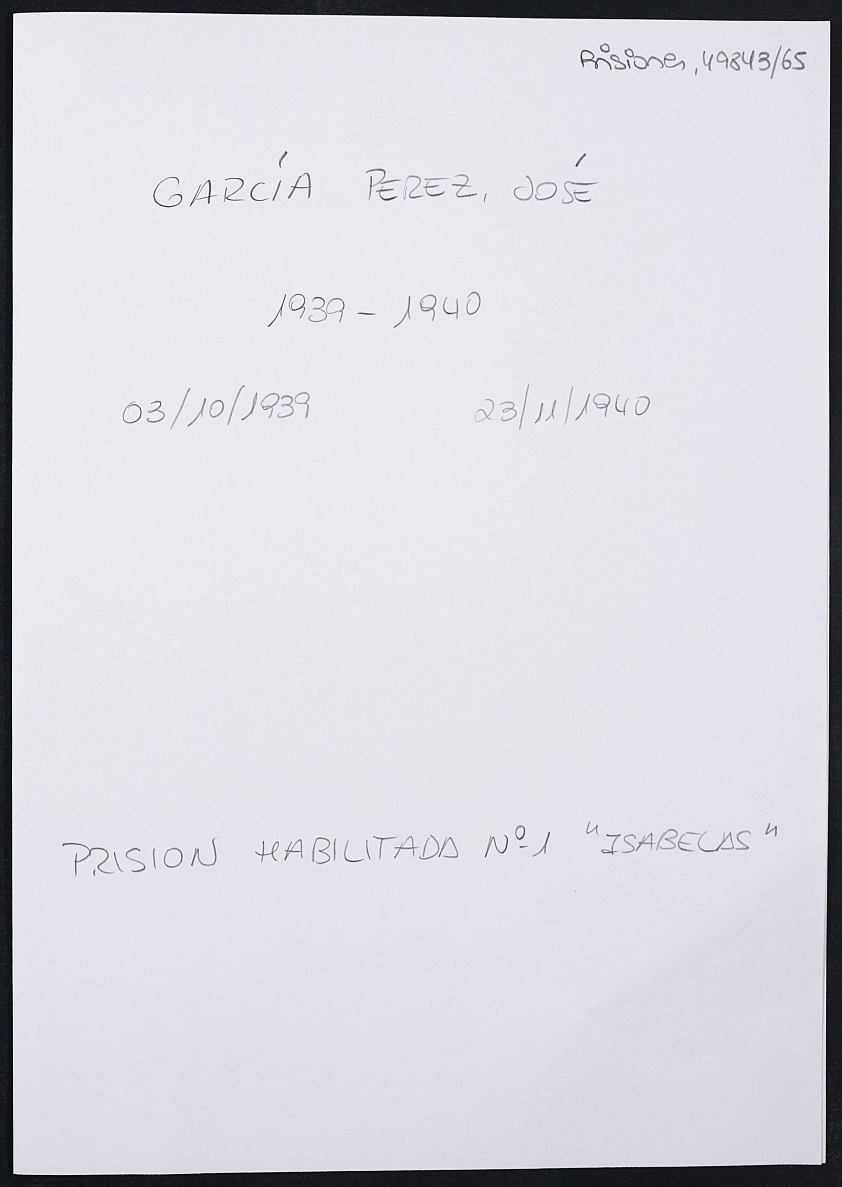 Prisiones, 49843/65
GARCÍA PEREZ, JOSÉ
1939 - 1940
03/10/1939 23/11/1940
PRISION HABILITADA Nº 1 "ISABELAS"